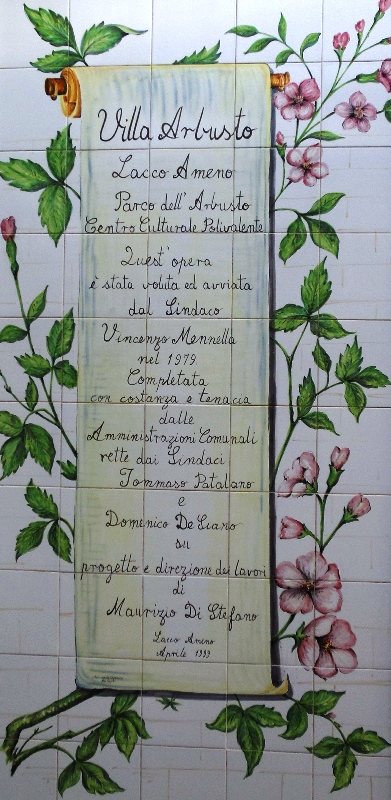 Villa Arbusto
Lacco Ameno
Parco dell' Arbusto
Centro Culturale Polivalente
Quest' opera
è stata voluta ed avviata
dal Sindaco
Vincenzo Mennella
nel 1979.
Completata
con costanza e tenacia
dalle
Amministrazioni Comunali
rette dai Sindaci
Tommaso Patalano
e
Domenico De Siano
su
progetto e direzione dei lavori
di
Maurizio Di Stefano
Lacco Ameno
Aprile 1999